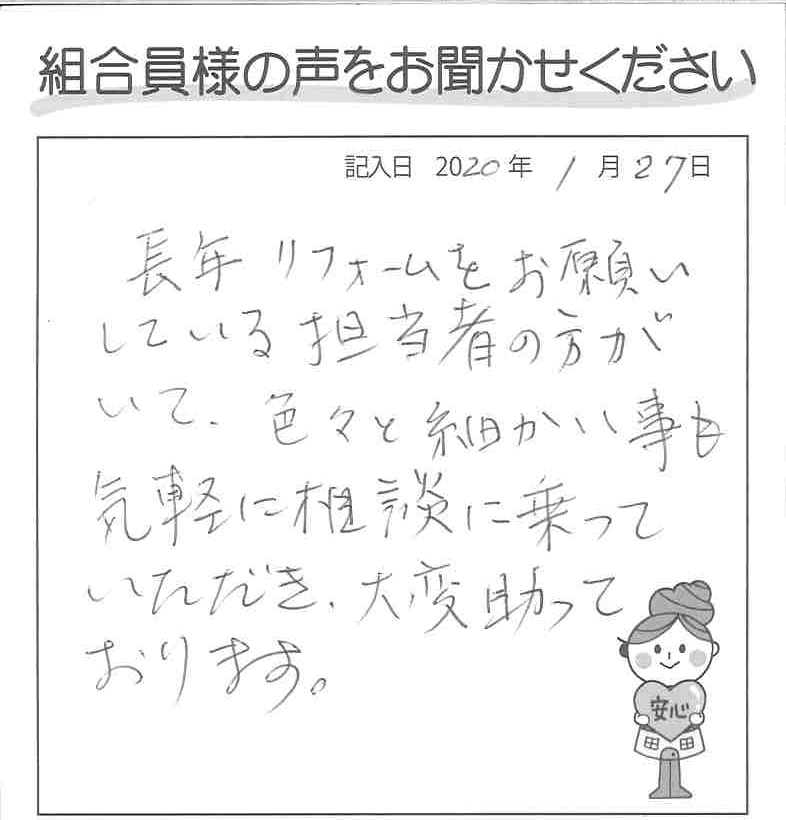 組合員様の声をお聞かせください
記入日 2020年 1月27日
長年リフォームをお願い
している担当者の方が
いて、色々と細かい事も
気軽に相談に乗って
いただき、大変助って
おります。
安心